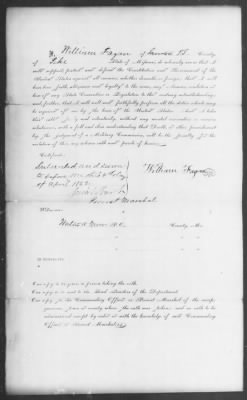 I, William Fagan of County
of Pike State of Missouri, do solemnly swear that I
will support, protect and defend the Constitution and Government of the
United States against all enemies, whether domestic or foreign; that I will
bear true faith, allegiance and loyalty to the same, any ordinance, resolution or
law of any State Convention or Legislature to the contrary notwithstanding;
and further, that I will well and faithfully perform all the duties which may
be required of me by the laws of the United States. And I take
this oath freely and voluntarily, without any mental reservation or evasion
whatsoever, with a full and clear understanding that Death, or other punishment
by the judgment of a Military Commission, will be the penalty for the
violation of this my solemn oath and parole of honor.
Certificate:
Subscribed and sworn
to before me this day
of April 1862
Provost Marshal
William Fagan
Witnesses:
County, Mo.
IN DUPLICATE.
One copy to be given to person taking the oath.
One copy to be sent to the Head Quarters of the Department.
One copy for the Commanding Officer or Provost Marshal of the
where the oath was taken; and no oath to be
administered except by or with the knowledge of such Commanding
Officer or Provost Marshal.